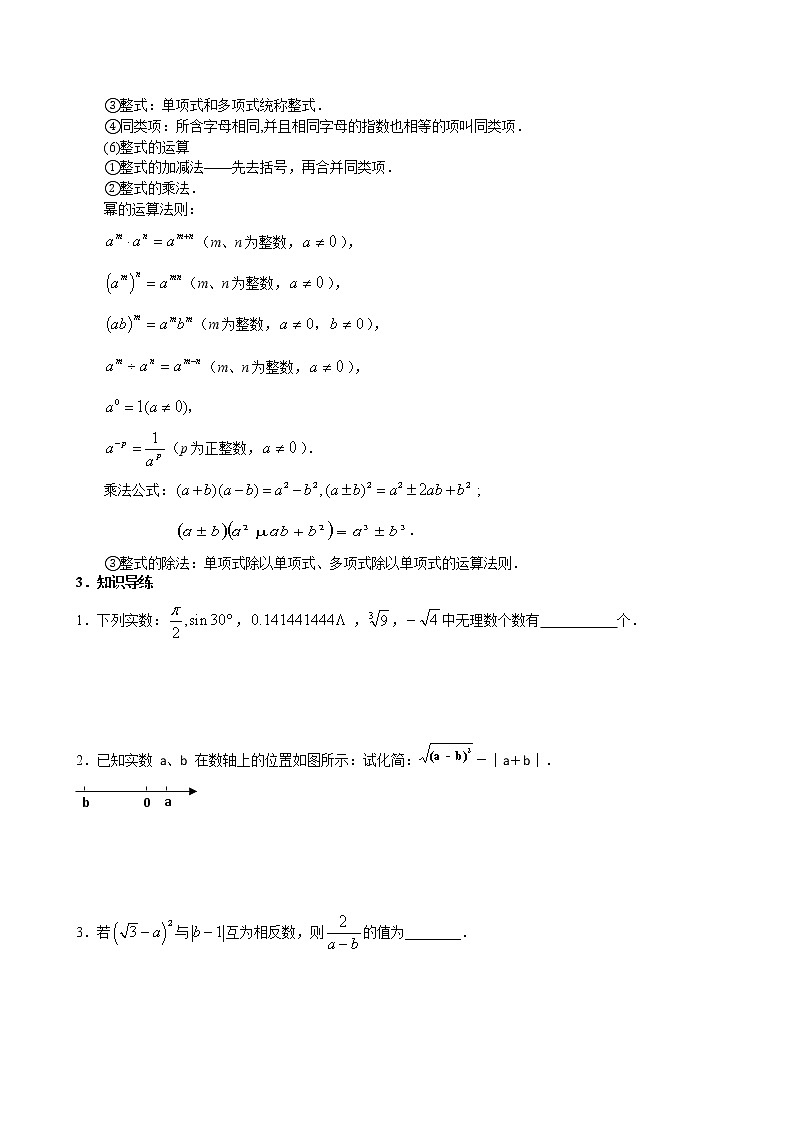 ③整式：单项式和多项式统称整式．
④同类项：所含字母相同,并且相同字母的指数也相等的项叫同类项．
(6)整式的运算
①整式的加减法——先去括号，再合并同类项．
②整式的乘法．
幂的运算法则：
a^m · a^n = a^{m+n}（m、n为整数，a ≠ 0），
(a^m)^n = a^{mn}（m、n为整数，a ≠ 0），
(ab)^m = a^m b^m（m为整数，a ≠ 0，b ≠ 0），
a^m ÷ a^n = a^{m−n}（m、n为整数，a ≠ 0），
a^0 = 1(a ≠ 0)，
a^{−p} = 1/a^p（p为正整数，a ≠ 0）．
乘法公式：(a+b)(a−b) = a² − b², (a±b)² = a² ± 2ab + b²；
(a ± b)(a² μ ab + b²) = a³ ± b³．
③整式的除法：单项式除以单项式、多项式除以单项式的运算法则．
3．知识导练
1．下列实数：π/2, sin 30°，0.141441444Λ ，∛9，−√4中无理数个数有___________个．
2．已知实数 a、b 在数轴上的位置如图所示：试化简：√(a − b)²－｜a＋b｜．
b 0 a
3．若(√3 − a)²与|b − 1|互为相反数，则2/(a − b)的值为________．